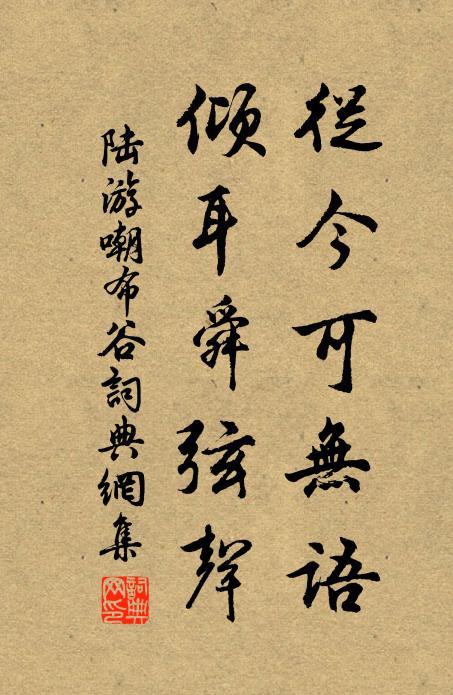 從今可無語
傾耳舜弦聲
陆游嘲布谷詞典網集
詞典网印